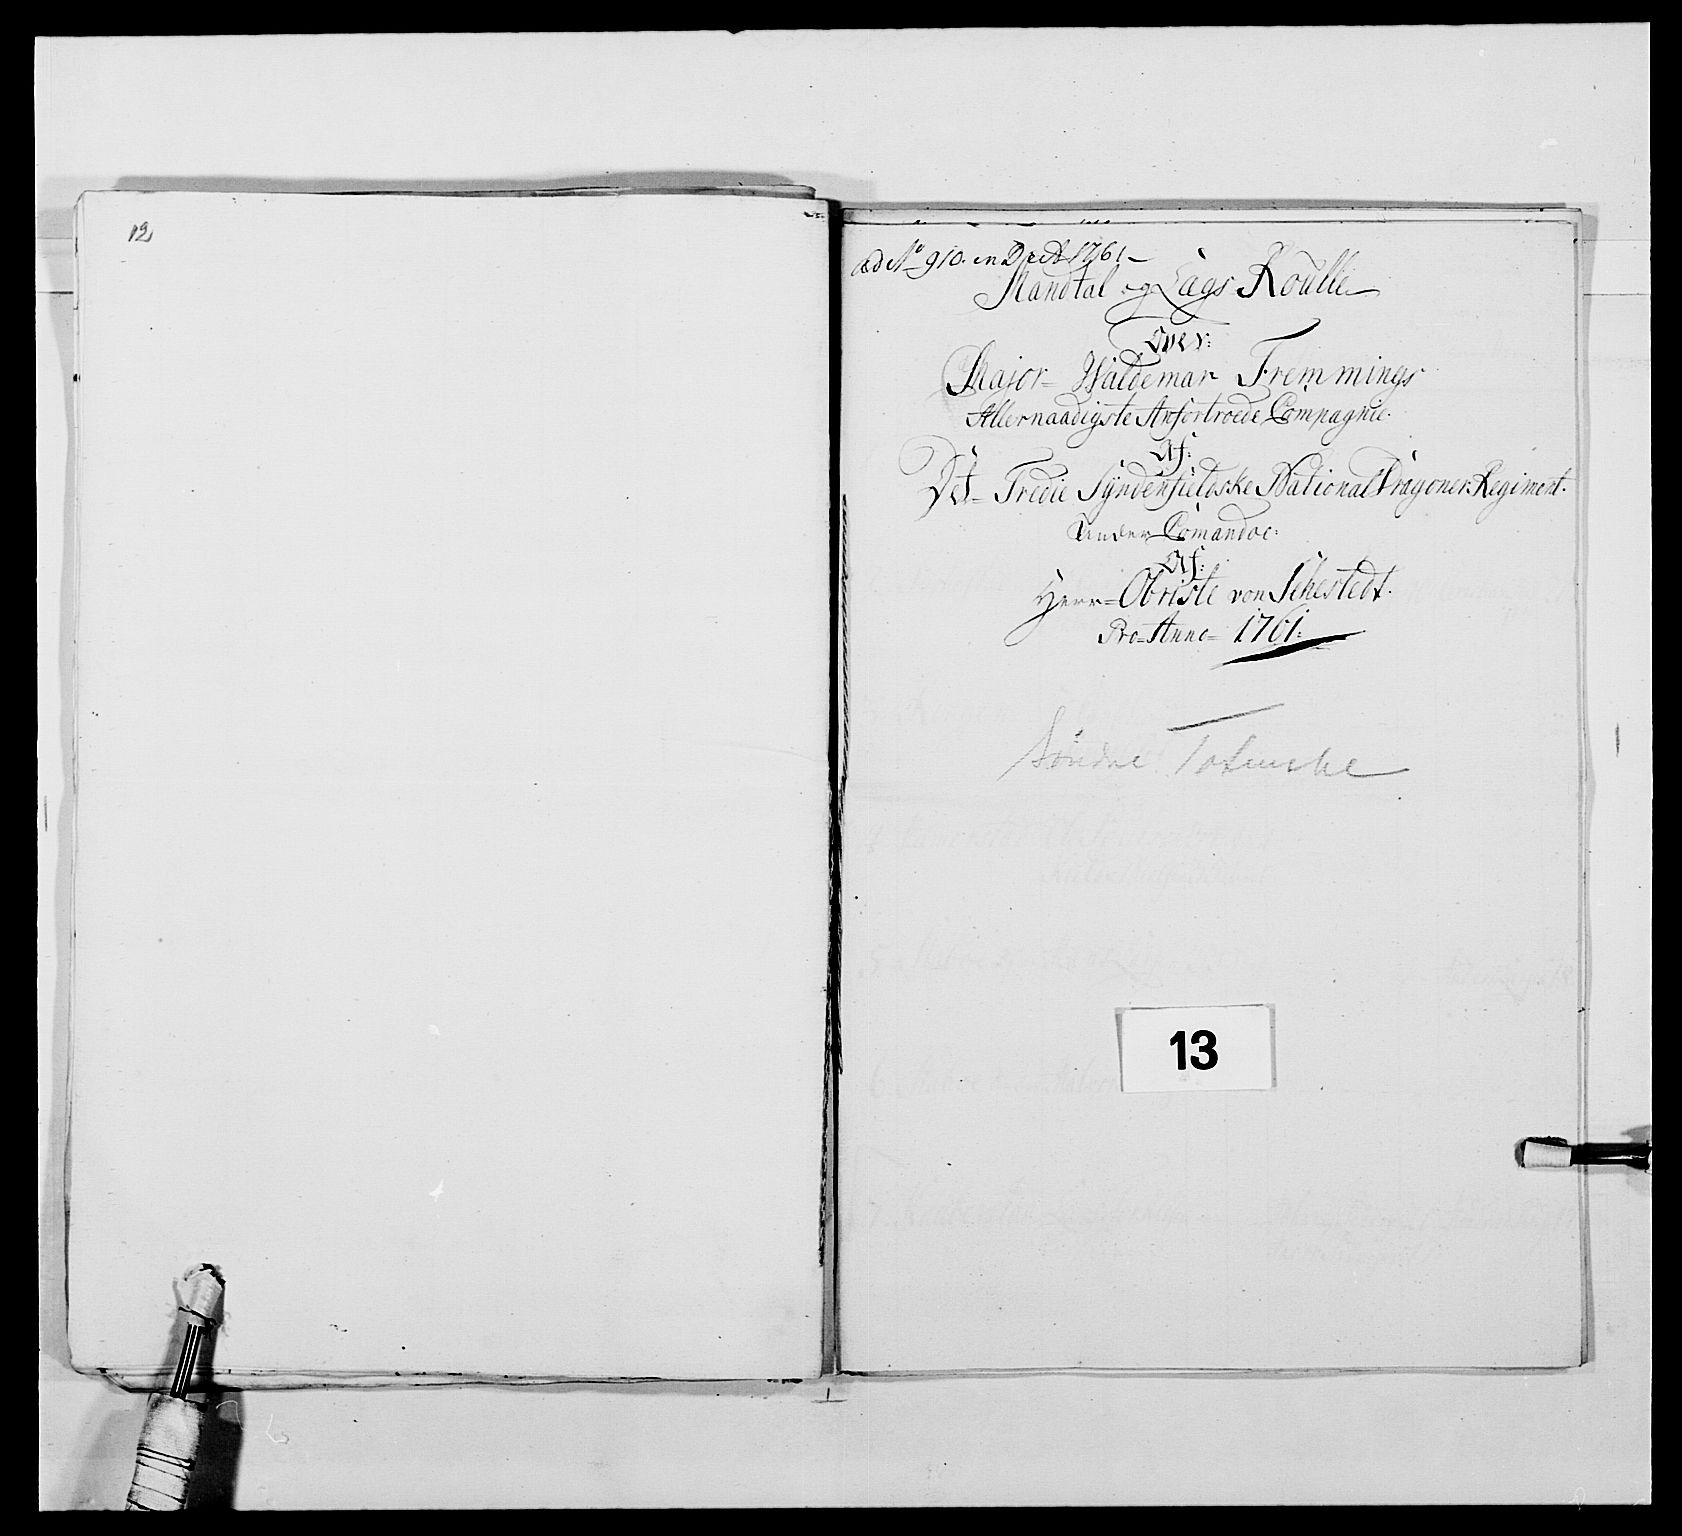 12
ad No 910. en Dect 1761 –
Mandtal og Lægs Roulle
Over:
Major- Waldemar Fremmings
Allernaadigste Anfortroede Compagnie.
Af:
Det- Tredie Syndenfieldske National Dragoner Regiment.
Under Comandoe:
Af:
Herr- Obriste von Sehestedt.
Pro- Anno- 1761:
Søndre
13